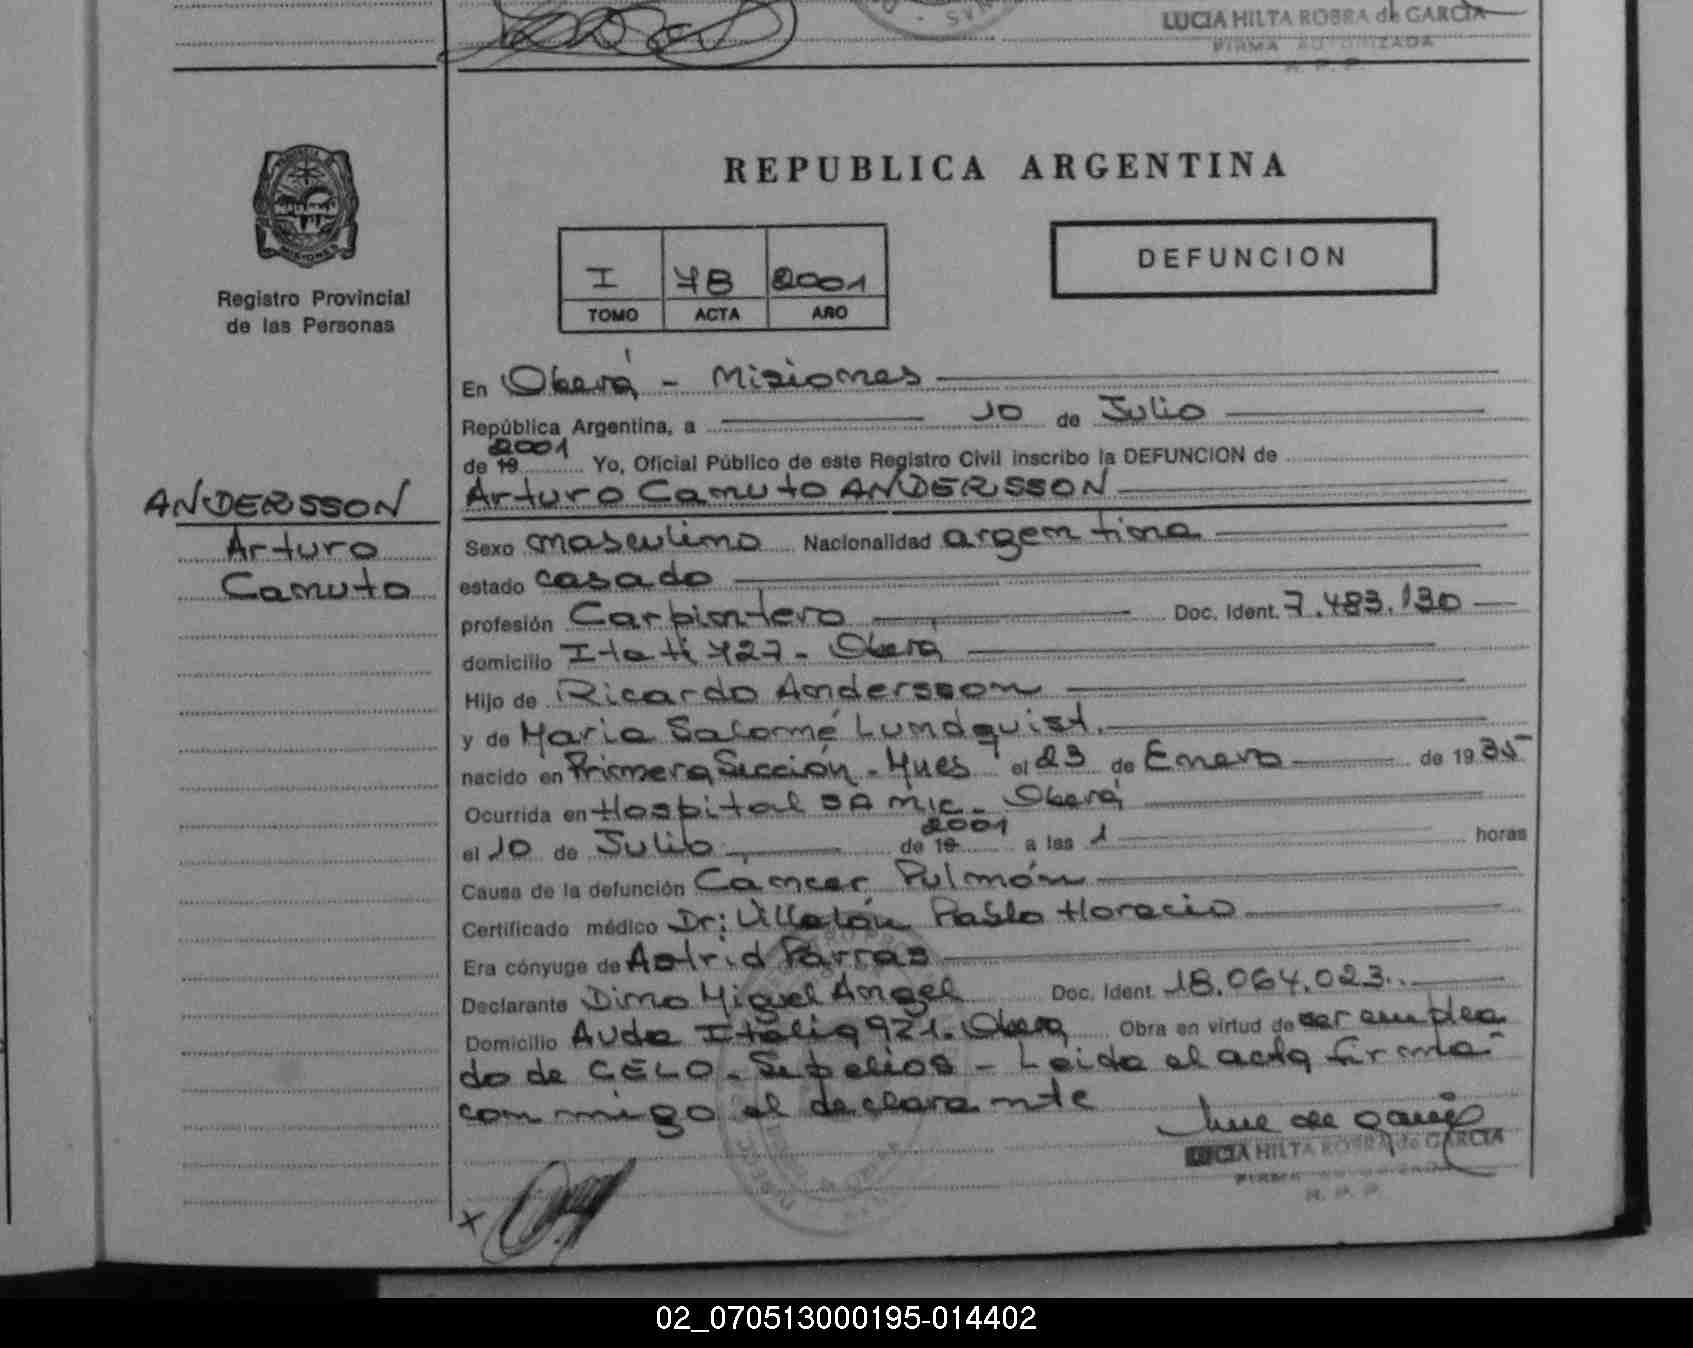 LUCIA HILTA ROBRA de GARCIA
FIRMA AUTORIZADA
R. P. P.
REPUBLICA ARGENTINA
DEFUNCION
I 78 2001
TOMO ACTA AÑO
Registro Provincial
de las Personas
En Oberá - Misiones
República Argentina, a 10 de Julio
2001
de 19 Yo, Oficial Público de este Registro Civil inscribo la DEFUNCION de
Arturo Canuto ANDERSSON
ANDERSSON
Arturo
Canuto
Sexo masculino Nacionalidad argentina
estado casado
profesión Carpintero Doc. Ident. 7.483.130
domicilio Itatí 727 - Oberá
Hijo de Ricardo Andersson
y de Maria Salomé Lundquist.
nacido en Primera Sección - Mnes el 23 de Enero de 1935
Ocurrida en Hospital SAMIC - Oberá
2001
el 10 de Julio de 19 a las 1 horas
Causa de la defunción Cancer Pulmón
Certificado médico Dr: Villalón Pablo Horacio
Era cónyuge de Astrid Parras
Declarante Dino Miguel Angel Doc. Ident. 18.064.023.
Domicilio Avda Italia 921. Oberá Obra en virtud de ser emplea
do de CELO - Sepelios - Leida el acta firma
conmigo el declarante
LUCIA HILTA ROBRA de GARCIA
FIRMA AUTORIZADA
R. P. P.
x
02_070513000195-014402